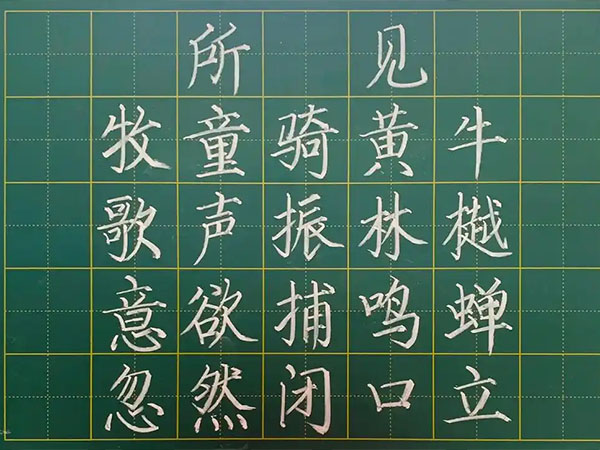 所见
牧童骑黄牛
歌声振林樾
意欲捕鸣蝉
忽然闭口立